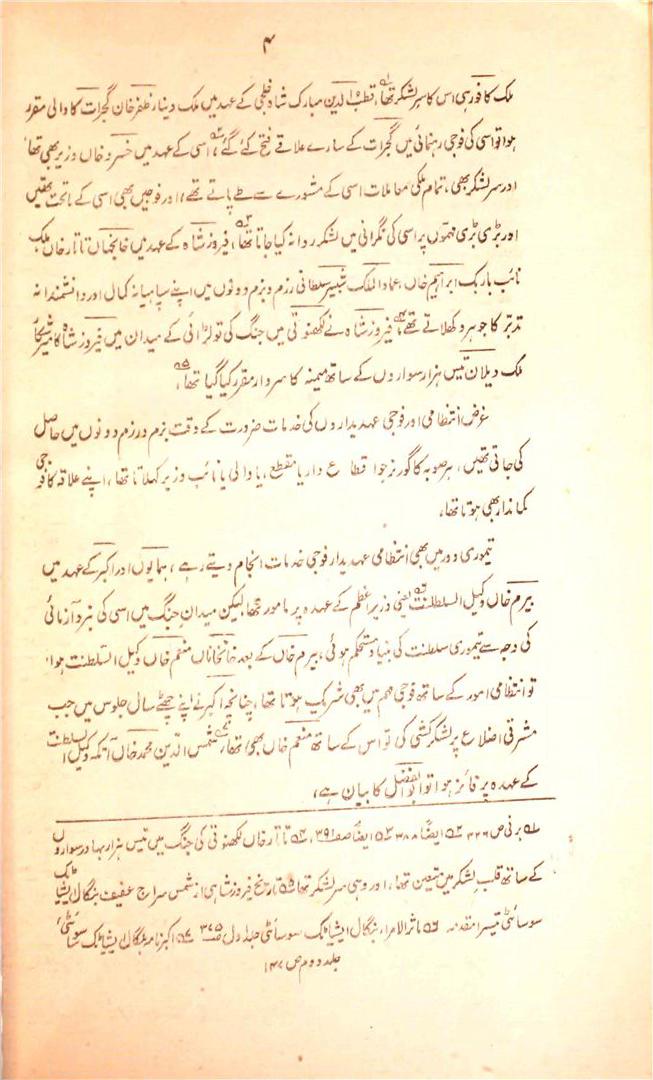 ۴
ملک کافور ہی اس کا سرلشکر تھا، قطب الدین مبارک شاہ خلجی کے عہد میں ملک دینار ظفر خان گجرات کا والی مقرر
ہوا تو اسی کی فوجی رہنمائی میں گجرات کے سارے علاقے فتح کئے گئے، اسی کے عہد میں خسرو خاں وزیر بھی تھا
اور سر لشکر بھی، تمام ملکی معاملات اسی کے مشورے سے طے پاتے تھے، اور فوجیں بھی اسی کے ماتحت تھیں
اور بڑی بڑی مہموں پر اسی کی نگرانی میں لشکر روانہ کیا جاتا تھا، فیروز شاہ کے عہد میں خانجہاں تاتار خاں ملک
نائب باربک ابراہیم خاں، عماد الملک شبیر سلطانی رزم و بزم دونوں میں اپنے سپاہیانہ کمال اور دانشمندانہ
تدبر کا جوہر دکھلاتے تھے، فیروز شاہ نے لکھنوتی میں جنگ کی تو لڑائی کے میدان میں فیروز شاہ کا میر شکار
ملک دیلان تیس ہزار سواروں کے ساتھ میمنہ کا سردار مقرر کیا گیا تھا،
غرض انتظامی اور فوجی عہدیداروں کی خدمات ضرورت کے وقت بزم و رزم دونوں میں حاصل
کی جاتی تھیں، ہر صوبہ کا گورنر جو اقطاع دار یا مقطع، یا والی یا نائب وزیر کہلاتا تھا، اپنے علاقہ کا فوجی
کماندار بھی ہوتا تھا،
تیموری دور میں بھی انتظامی عہدیدار فوجی خدمات انجام دیتے رہے، ہمایوں اور اکبر کے عہد میں
بیرم خاں وکیل السلطنت یعنی وزیر اعظم کے عہدہ پر مامور تھا لیکن میدان جنگ میں اسی کی نبرد آزمائی
کی وجہ سے تیموری سلطنت کی بنیاد مستحکم ہوئی، بیرم خاں کے بعد خانخاناں منعم خاں وکیل السلطنت ہوا
تو انتظامی امور کے ساتھ فوجی مہم میں بھی شریک ہوتا تھا، چنانچہ اکبر نے اپنے چھٹے سال جلوس میں جب
مشرقی اضلاع پر لشکر کشی کی تو اس کے ساتھ منعم خاں بھی تھا، شمس الدین محمد خاں اتکہ وکیل السلطنت
کے عہدہ پر فائز ہوا تو ابو الفضل کا بیان ہے،
۱؎ برنی ص ۳۲۶ ۲؎ ایضاً ۳۸۸ ۳؎ ایضاً صفحہ ۳۹۱، ۴؎ تاتار خاں لکھنوتی کی جنگ میں تیس ہزار بہادر سواروں
کے ساتھ قلب لشکر میں متعین تھا، اور وہی سر لشکر تھا ۵؎ تاریخ فیروز شاہی از شمس سراج عفیف بنگال ایشیاٹک
سوسائٹی تیسرا مقدمہ ۶؎ ماثر الامراء بنگال ایشیاٹک سوسائٹی جلد اول ص ۳۷۵ ۷؎ اکبر نامہ بنگال ایشیاٹک سوسائٹی
جلد دوم ص ۱۴۷